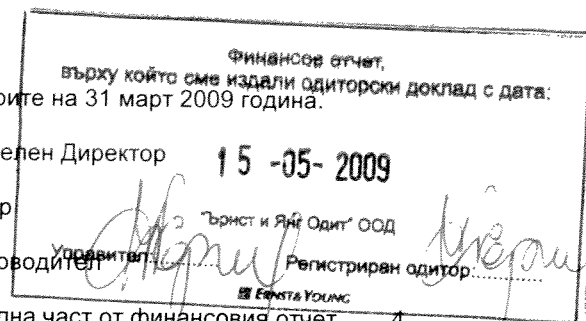 Финансов отчет,
върху който сме издали одиторски доклад с дата:
рите на 31 март 2009 година.
елен Директор
15 -05- 2009
р
"Ърнст и Янг Одит" ООД
оводител
Управител:
Регистриран одитор:
ERNST & YOUNG
лна част от финансовия отчет.